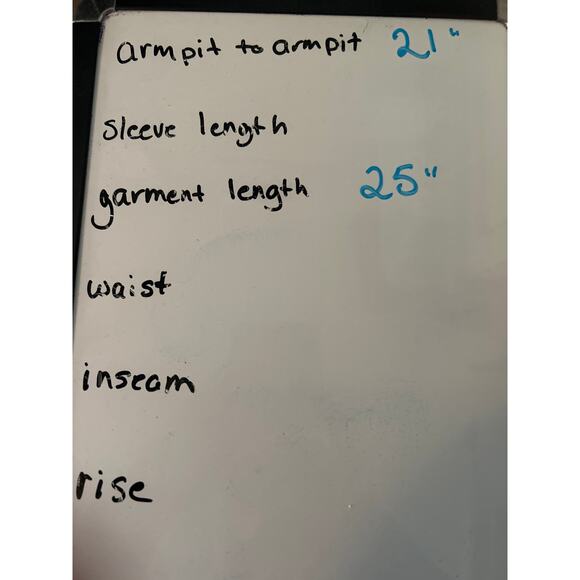 armpit to armpit 21"
sleeve length
garment length 25"
waist
inseam
rise